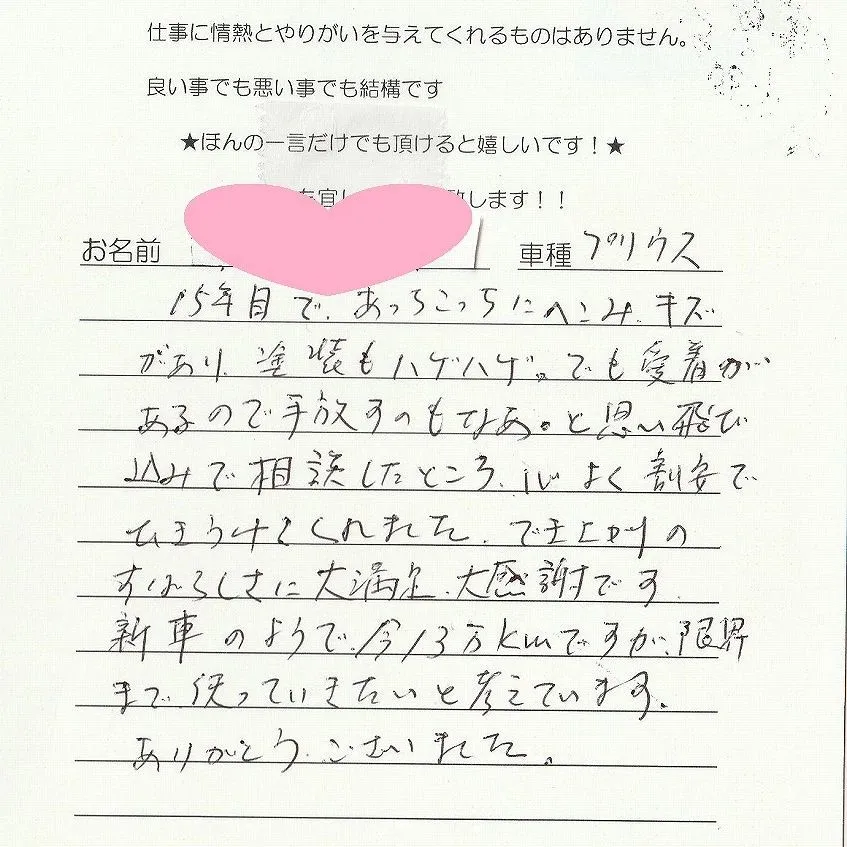 仕事に情熱とやりがいを与えてくれるものはありません。
良い事でも悪い事でも結構です
★ほんの一言だけでも頂けると嬉しいです！★
を宜し 致します！！
お名前 車種 プリウス
15年目で、あっちこっちにヘこみ、キズ
があり、塗装もハゲハゲ。でも愛着が
あるので手放すのもなあ。と思い飛び
込みで相談したところ、心よく割安で
ひきうけてくれました。でき上がりの
すばらしさに大満足、大感謝です。
新車のようで、今13万kmですが、限界
まで使っていきたいと考えています。
ありがとうございました。